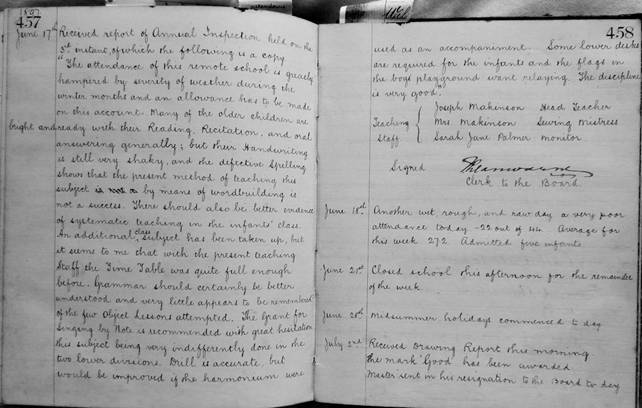 457
1897
June 17th Received report of Annual Inspection held on the
3rd instant, of which the following is a copy
"The attendance of this remote school is greatly
hampered by severity of weather during the
winter months and an allowance has to be made
on this account. Many of the older children are
bright and ready with their Reading, Recitation, and oral
answering generally; but their Handwriting
is still very shaky, and the defective Spelling
shows that the present method of teaching this
subject by means of wordbuilding is
not a success. There should also be better evidence
of systematic teaching in the infants' class.
An additional class subject has been taken up, but
it seems to me that with the present teaching
Staff the Time Table was quite full enough
before. Grammar should certainly be better
understood and very little appears to be remembered
of the few Object Lessons attempted. The Grant for
Singing by Note is recommended with great hesitation
this subject being very indifferently done in the
two lower divisions. Drill is accurate, but
would be improved if the harmonium were
458
used as an accompaniment. Some lower desks
are required for the infants and the flags in
the boys playground want relaying. The discipline
is very good."
Teaching Staff
Joseph Makinson Head Teacher
Mrs Makinson Sewing Mistress
Sarah Jane Palmer Monitor
Signed
Clerk to the Board
June 18th Another wet, rough, and raw day a very poor
attendance today - 22 out of 44. Average for
this week 27.2 Admitted five infants
June 21st Closed school this afternoon for the remainder
of the week.
Midsummer holidays commenced to day
July 2nd Received Drawing Report this morning
The mark 'Good' has been awarded
Master sent in his resignation to the Board to day